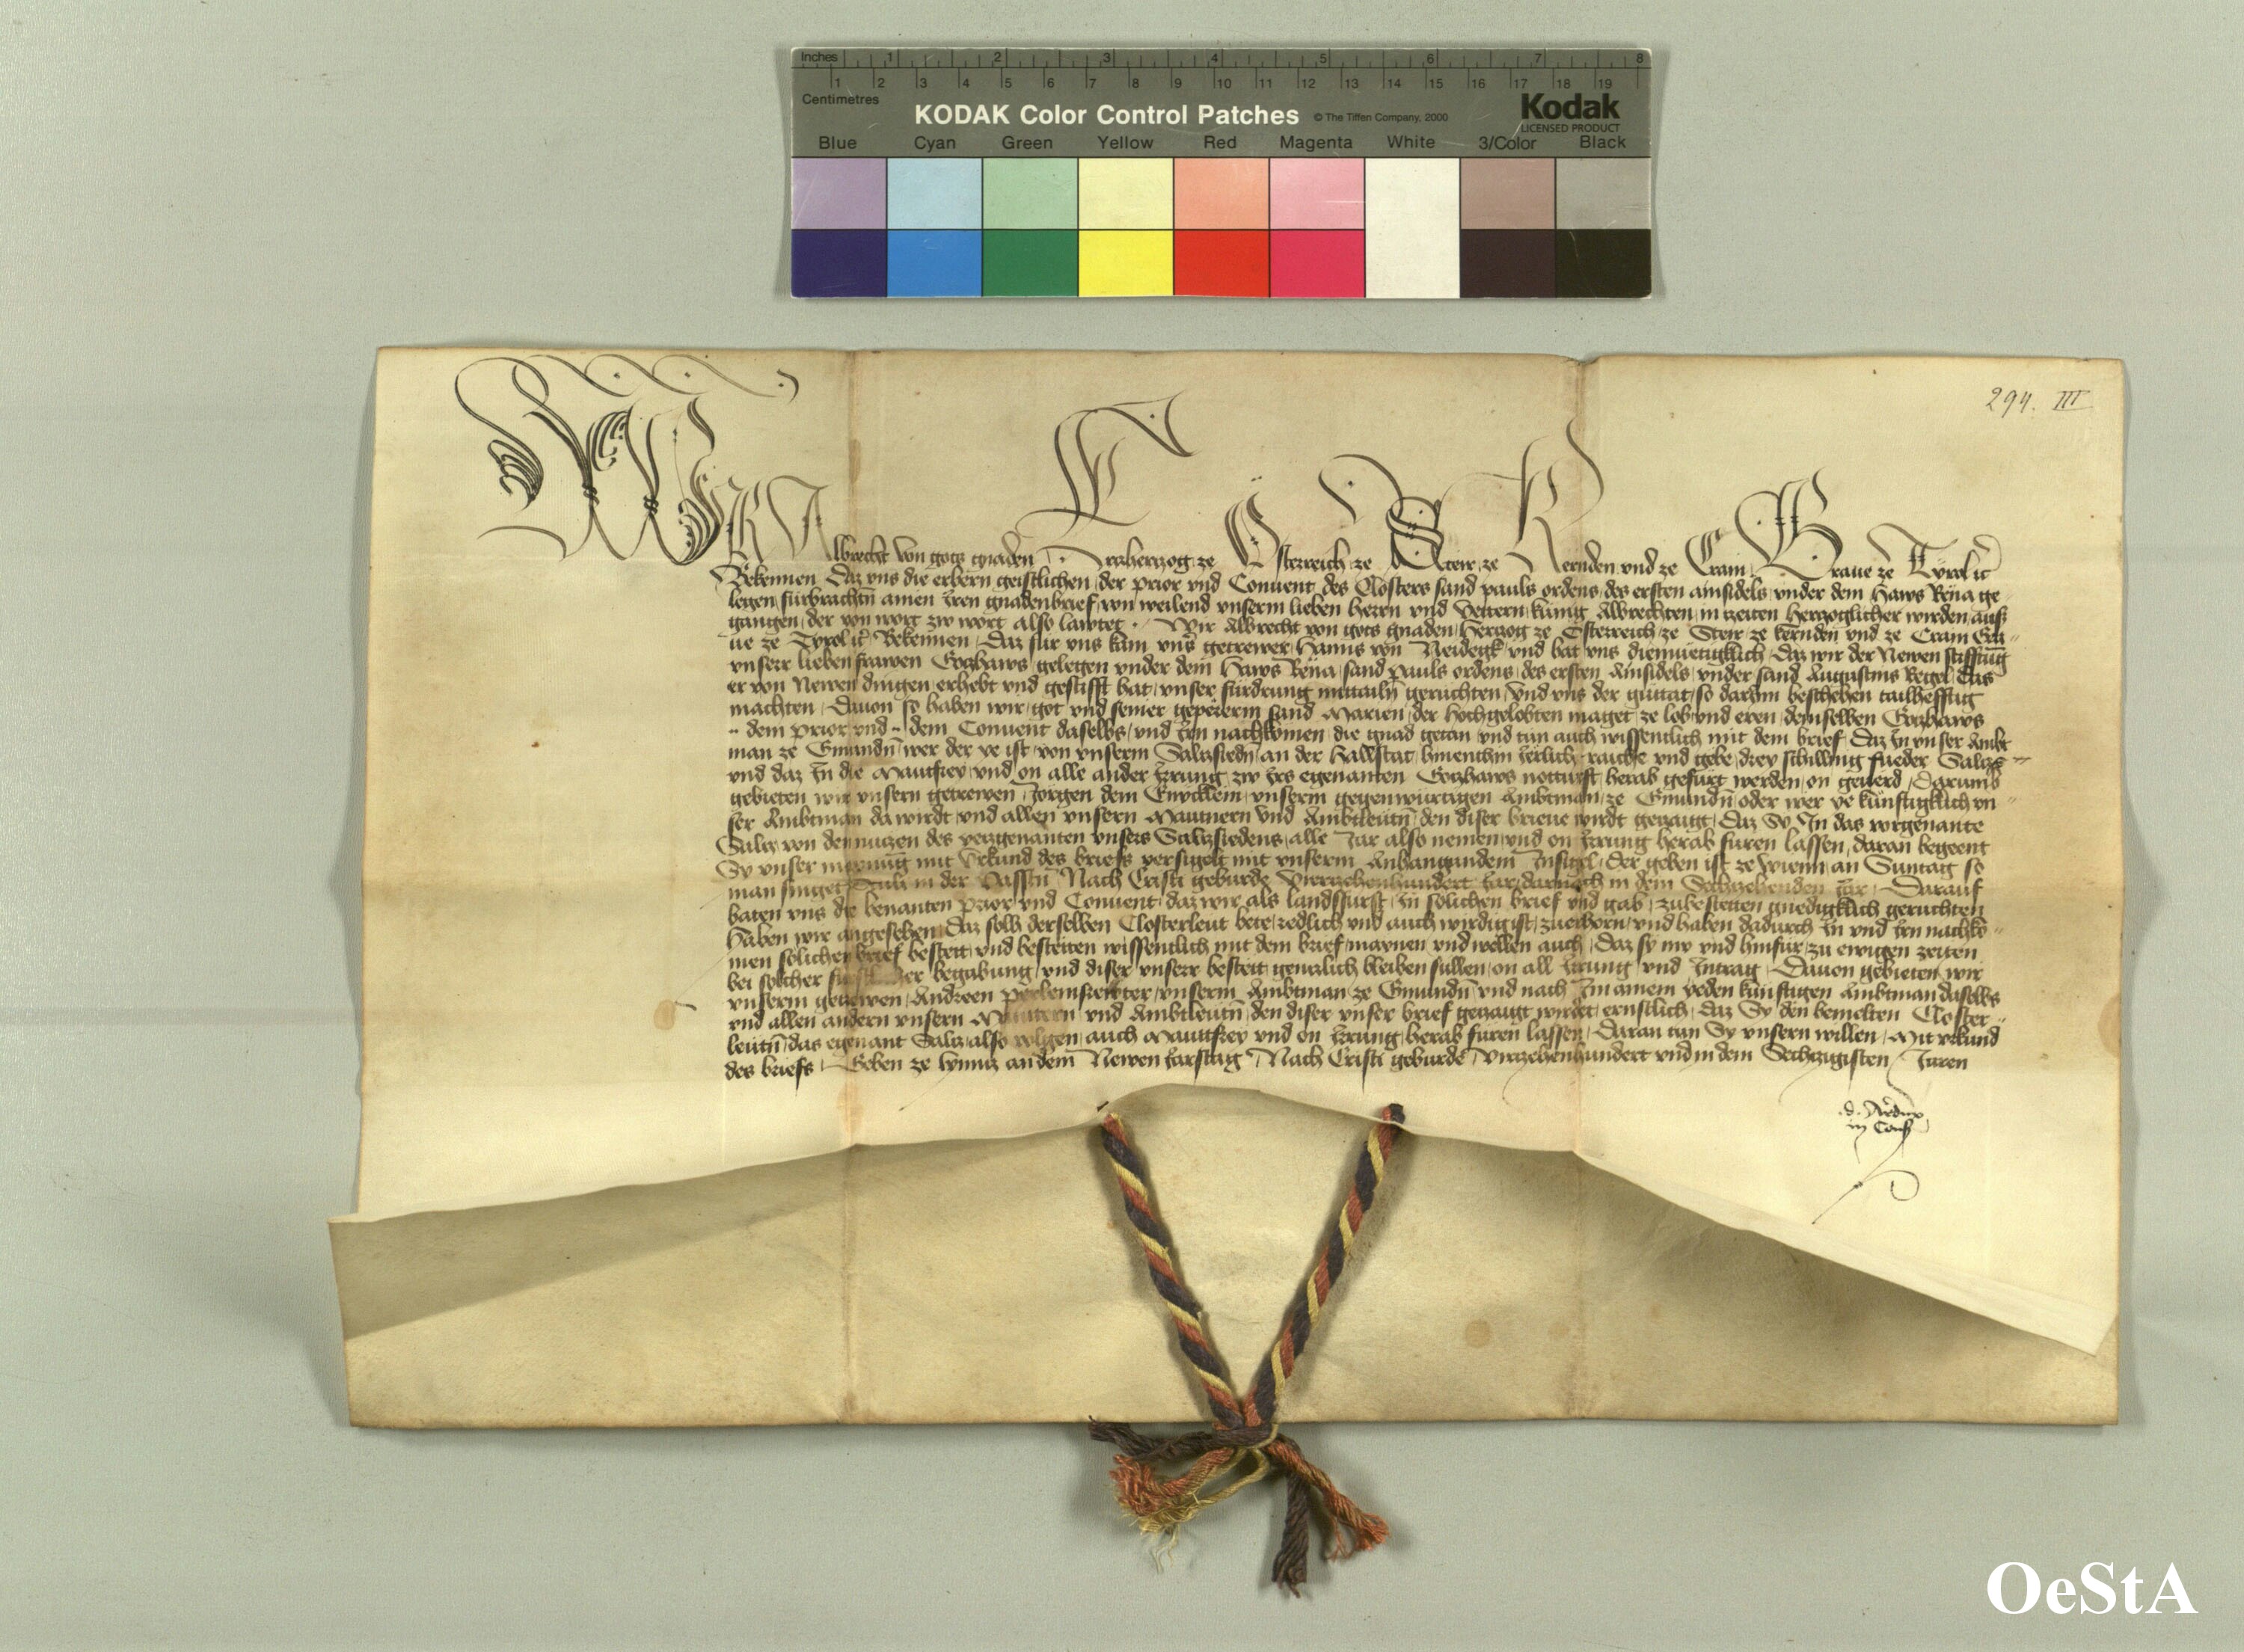 Inches 1 2 3 4 5 6 7 8
1 2 3 4 5 6 7 8 9 10 11 12 13 14 15 16 17 18 19
Centimetres
KODAK Color Control Patches © The Tiffen Company, 2000 Kodak
LICENSED PRODUCT
Blue Cyan Green Yellow Red Magenta White 3/Color Black
294. III
WIR Albrecht von gots gnaden Ertzhertzog ze Österreich ze Steir ze Kernden vnd ze Crain Graue ze Tyrol etc
Bekennen Daz vns die erbern geistlichen der prior vnd Conuent des Closters sand pauls ordens des ersten ainsidels vnder dem Haws Rena ge
legen fürbrachtn ainen Iren gnadenbrief von weilend vnserm lieben herrn vnd Vettern kunig Albrechten in zeiten Herzoglicher wirden auß
gangen der von wort zw wort also lawtet Wir Albrecht von gots gnaden Hertzog ze Österreich ze Steir ze kernden vnd ze Crain Gra
ue ze Tyrol etc Bekennen Daz für vns kam vns getrewer Hanns von Neidegk vnd bat vns diemuetigklich Daz wir der Newen stifftung
vnserr lieben frawen Gotzhaws gelegen vnder dem Haws Rena sand Pauls ordens des ersten Ainsidels vnder sand Augustins Regel Das
er von Newen dingen erhebt vnd gestifft hat vnser fürdrung mittailn geruchten vnd vns der guttat so darinn beschehen tailhefftig
machten Dauon so haben wir got vnd seiner gepererin sand Marien der hochgelobten maget ze lob vnd eren demselben Gotzhaws
dem prior vnd dem Conuent daselbs vnd irn nachkomen die gnad getan vnd tun auch wissentlich mit dem brief Daz In vnser Ambt
man ze Gmundn wer der ye ist von vnserm Salzsiedn an der Hallstat hinenthin Jerlich raiche vnd gebe drey schilling fueder Saltz
vnd daz In die Mautfrey vnd on alle ander Irrung zw irs egenanten Gotzhaws notturft herab gefürt werden on geuerd Darumb
gebieten wir vnsern getrewen Jorgen dem vnserm gegenwürtigen Ambtman ze Gmundn oder wer ye künftigklich vn
ser Ambtman da wirdt vnd allen vnsern Mautnern vnd Ambtleutn den diser brieue wirdt getzaigt Daz Sy In das vorgenante
Saltz von den nutzen des yetzgenanten vnsers Saltzsiedens alle Jar also nemen vnd on Irrung herab füren lassen daran begeent
Sy vnser maynung mit Vrkund des briefs versigelt mit vnserm Anhangundem Insigel Der geben ist ze Wienn an Suntag so
man singet in der Vassten Nach Cristi geburde Vierzehenhundert Jar darnach in dem Sechzehenden Jar Darauf
baten vns die benanten prior vnd Conuent daz wir als landsfürst In solichen brief vnd gab zubestetten gnedigklich geruchten
Haben wir angesehen Daz solh derselben Closterleut bete redlich vnd auch wirdig ist zuerhörn vnd haben dadurch In vnd irn nachko
men solichen brief bestett vnd bestetten wissentlich mit dem brief maynen vnd wellen auch Daz sy nw vnd hinfür zu ewigen zeiten
bei solcher begabung vnd diser vnserr bestett genzlich bleiben sullen on all Irrung vnd Intrag Dauon gebieten wir
vnserm getrewen Andreen vnserm Ambtman ze Gmundn vnd nach Im ainem yeden künftigen Ambtman daselbs
vnd allen andern vnsern Mauttern vnd Ambtleutn den diser vnser brief getzaigt wirdet ernstlich Daz Sy den bemelten Closter
leutn das egenant Saltz also volgen auch Mauttfrey vnd on Irrung herab füren lassen Daran tun Sy vnsern willen Mit vrkund
des briefs Geben ze Lynntz an dem Newen Jarstag Nach Cristi geburde Vierzehenhundert vnd in dem Sechtzigisten Jaren
in Cons
OeStA